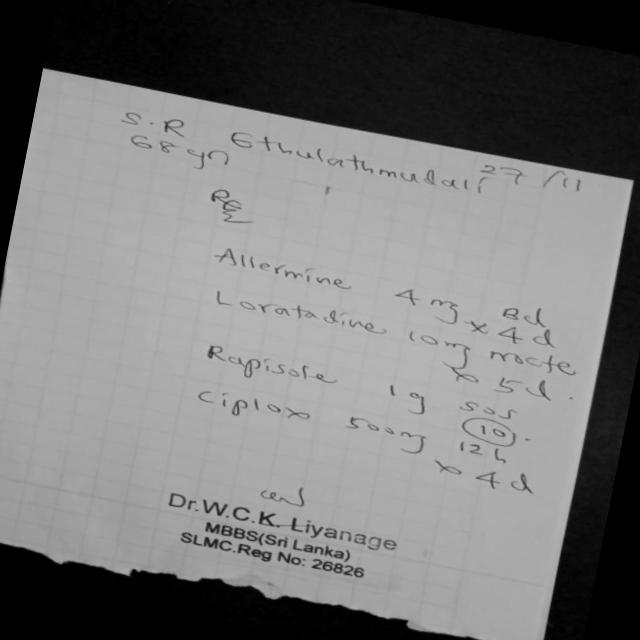 S. R Ethulathmudali 27/11
68 yr
Allermine 4 mg bd
x 4 d
Loratadine 10mg nocte
x 5 d.
Rapisole 1g sos
(10).
Ciplox 500mg 12h
x 4 d
Dr.W.C.K. Liyanage
MBBS(Sri Lanka)
SLMC.Reg No: 26826